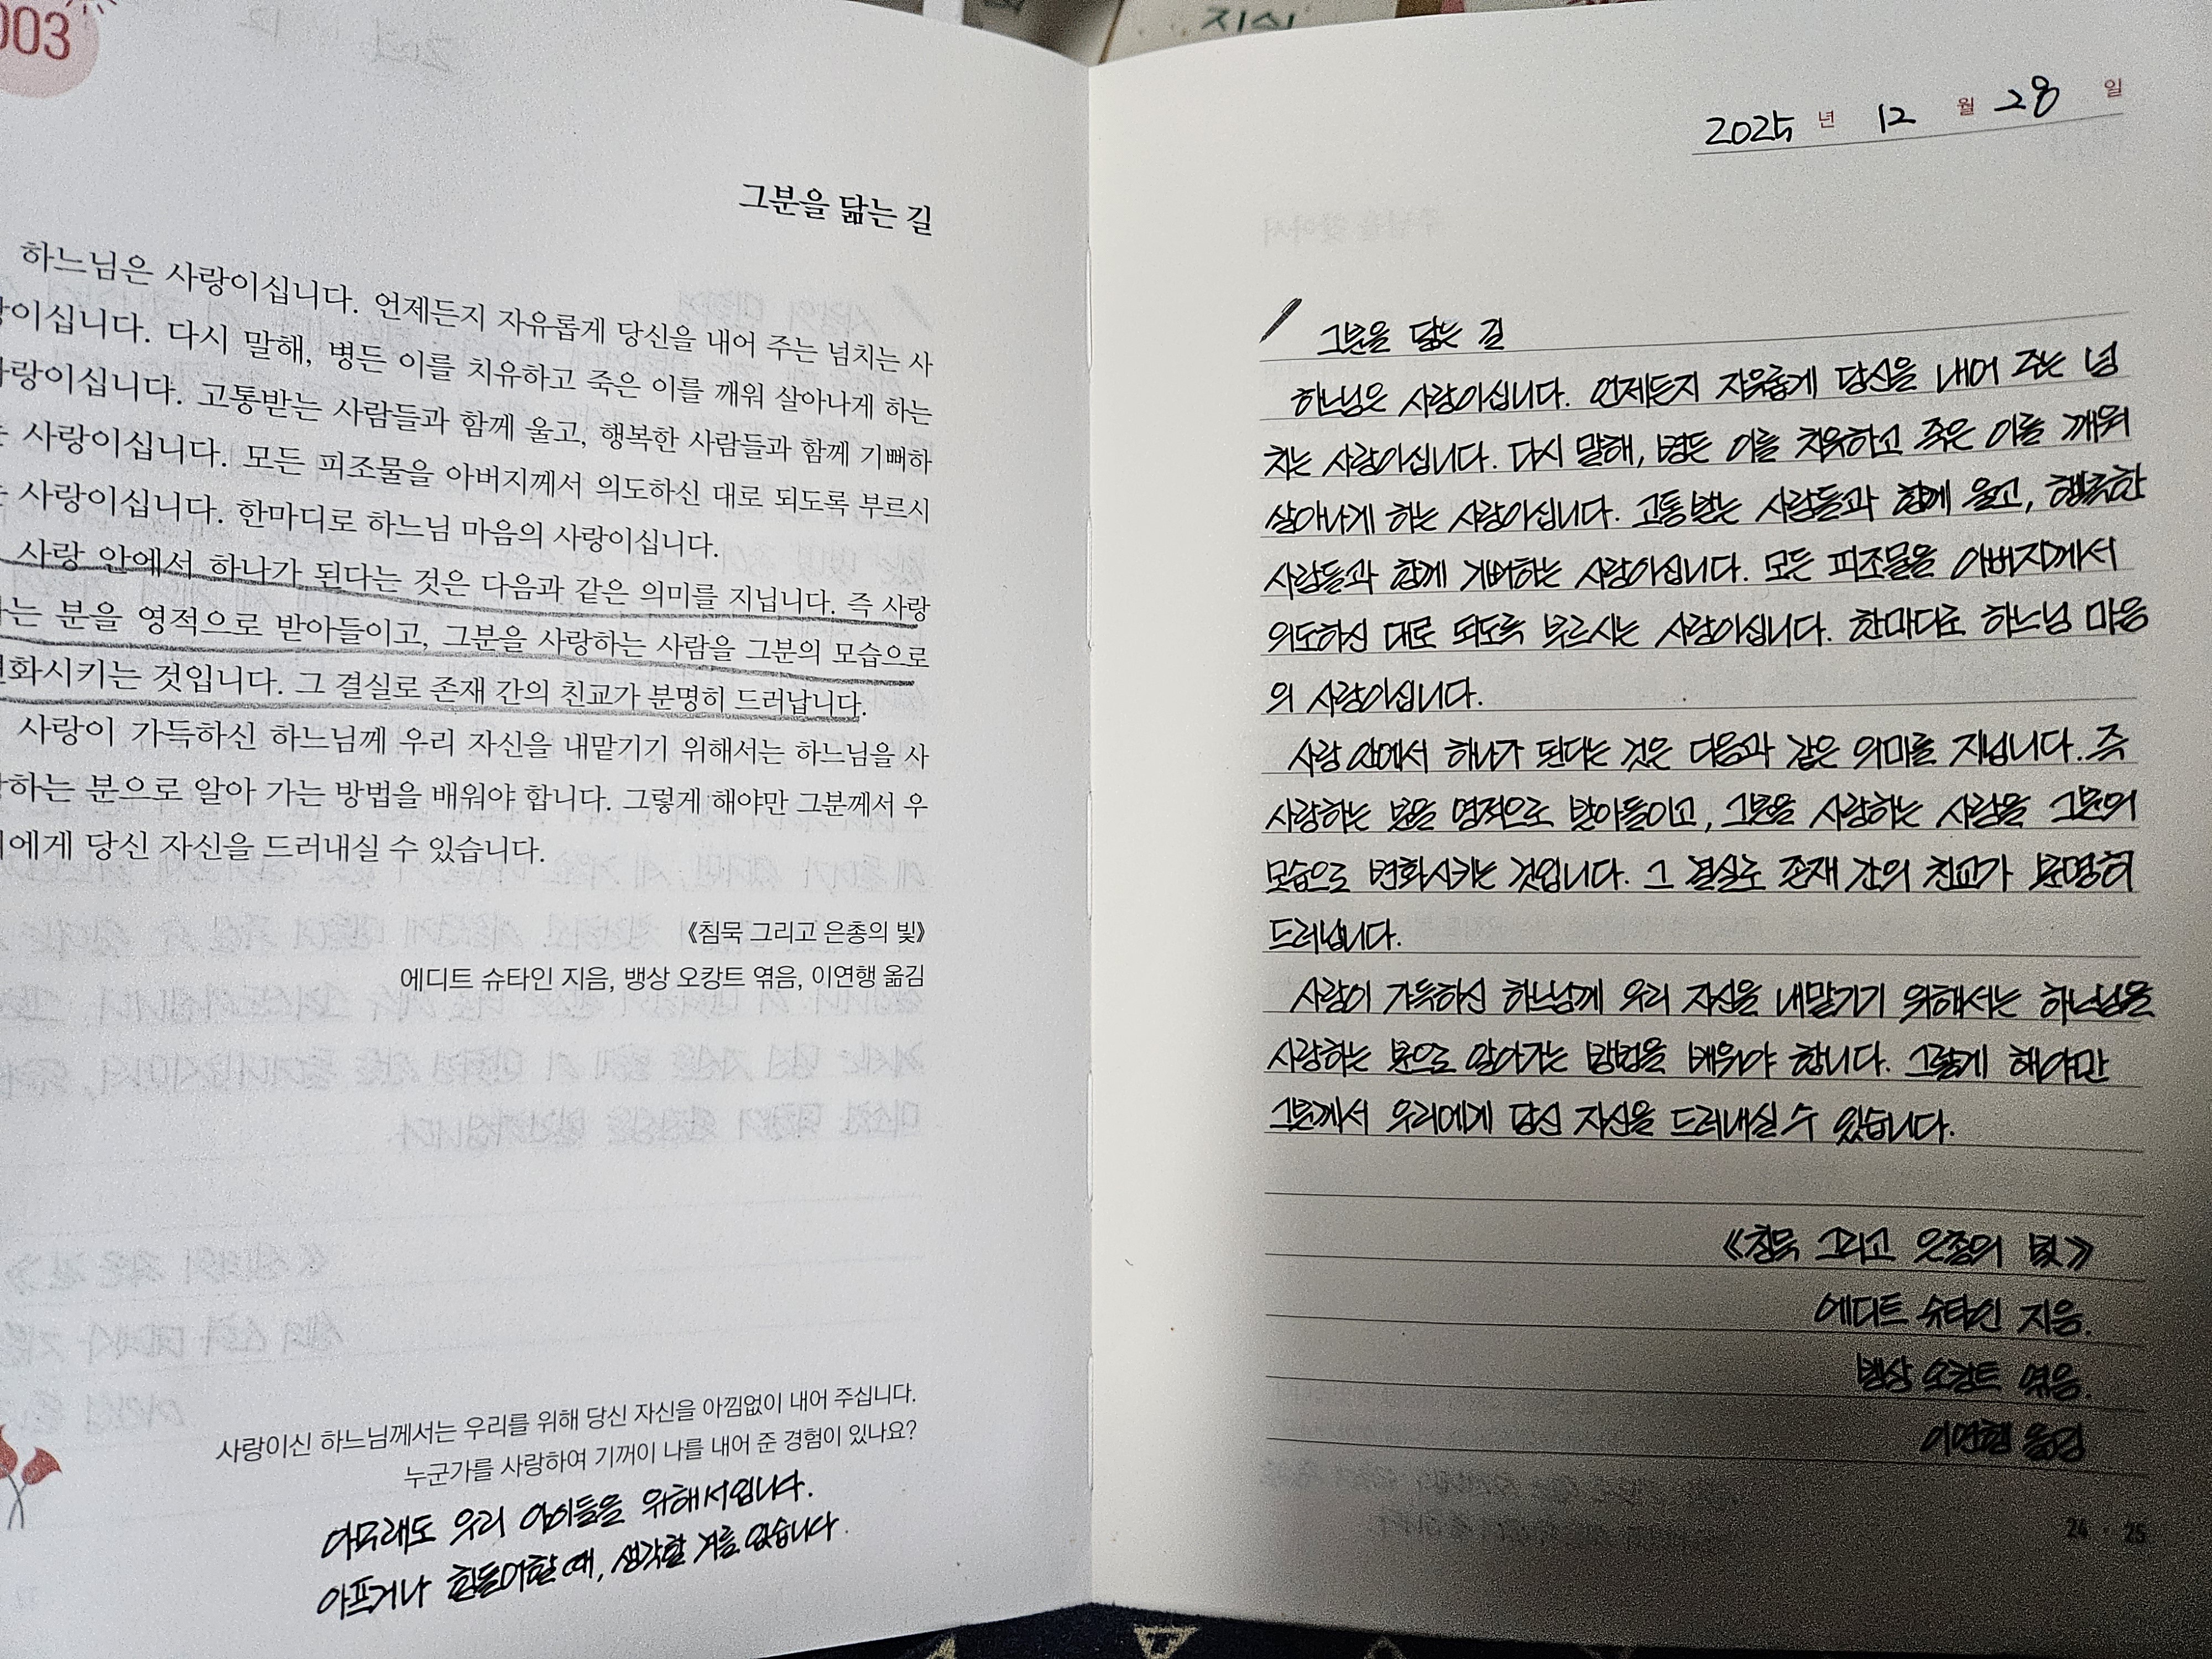 003
지식
그분을 닮는 길
하느님은 사랑이십니다. 언제든지 자유롭게 당신을 내어 주는 넘치는 사
랑이십니다. 다시 말해, 병든 이를 치유하고 죽은 이를 깨워 살아나게 하는
사랑이십니다. 고통받는 사람들과 함께 울고, 행복한 사람들과 함께 기뻐하
는 사랑이십니다. 모든 피조물을 아버지께서 의도하신 대로 되도록 부르시
는 사랑이십니다. 한마디로 하느님 마음의 사랑이십니다.
사랑 안에서 하나가 된다는 것은 다음과 같은 의미를 지닙니다. 즉 사랑
하는 분을 영적으로 받아들이고, 그분을 사랑하는 사람을 그분의 모습으로
변화시키는 것입니다. 그 결실로 존재 간의 친교가 분명히 드러납니다.
사랑이 가득하신 하느님께 우리 자신을 내맡기기 위해서는 하느님을 사
랑하는 분으로 알아 가는 방법을 배워야 합니다. 그렇게 해야만 그분께서 우
리에게 당신 자신을 드러내실 수 있습니다.
《침묵 그리고 은총의 빛》
에디트 슈타인 지음, 뱅상 오캉트 엮음, 이연행 옮김
사랑이신 하느님께서는 우리를 위해 당신 자신을 아낌없이 내어 주십니다.
누군가를 사랑하여 기꺼이 나를 내어 준 경험이 있나요?
아무래도 우리 아이들을 위해서입니다.
아프거나 힘들어할 때, 생각할 겨를 없습니다.
2025 년 12 월 28 일
그분을 닮는 길
하느님은 사랑이십니다. 언제든지 자유롭게 당신을 내어 주는 넘
치는 사랑이십니다. 다시 말해, 병든 이를 치유하고 죽은 이를 깨워
살아나게 하는 사랑이십니다. 고통받는 사람들과 함께 울고, 행복한
사람들과 함께 기뻐하는 사랑이십니다. 모든 피조물을 아버지께서
의도하신 대로 되도록 부르시는 사랑이십니다. 한마디로 하느님 마음
의 사랑이십니다.
사랑 안에서 하나가 된다는 것은 다음과 같은 의미를 지닙니다. 즉
사랑하는 분을 영적으로 받아들이고, 그분을 사랑하는 사람을 그분의
모습으로 변화시키는 것입니다. 그 결실로 존재 간의 친교가 분명히
드러납니다.
사랑이 가득하신 하느님께 우리 자신을 내맡기기 위해서는 하느님을
사랑하는 분으로 알아가는 방법을 배워야 합니다. 그렇게 해야만
그분께서 우리에게 당신 자신을 드러내실 수 있습니다.
《침묵 그리고 은총의 빛》
에디트 슈타인 지음.
뱅상 오캉트 엮음.
이연행 옮김
24 · 25